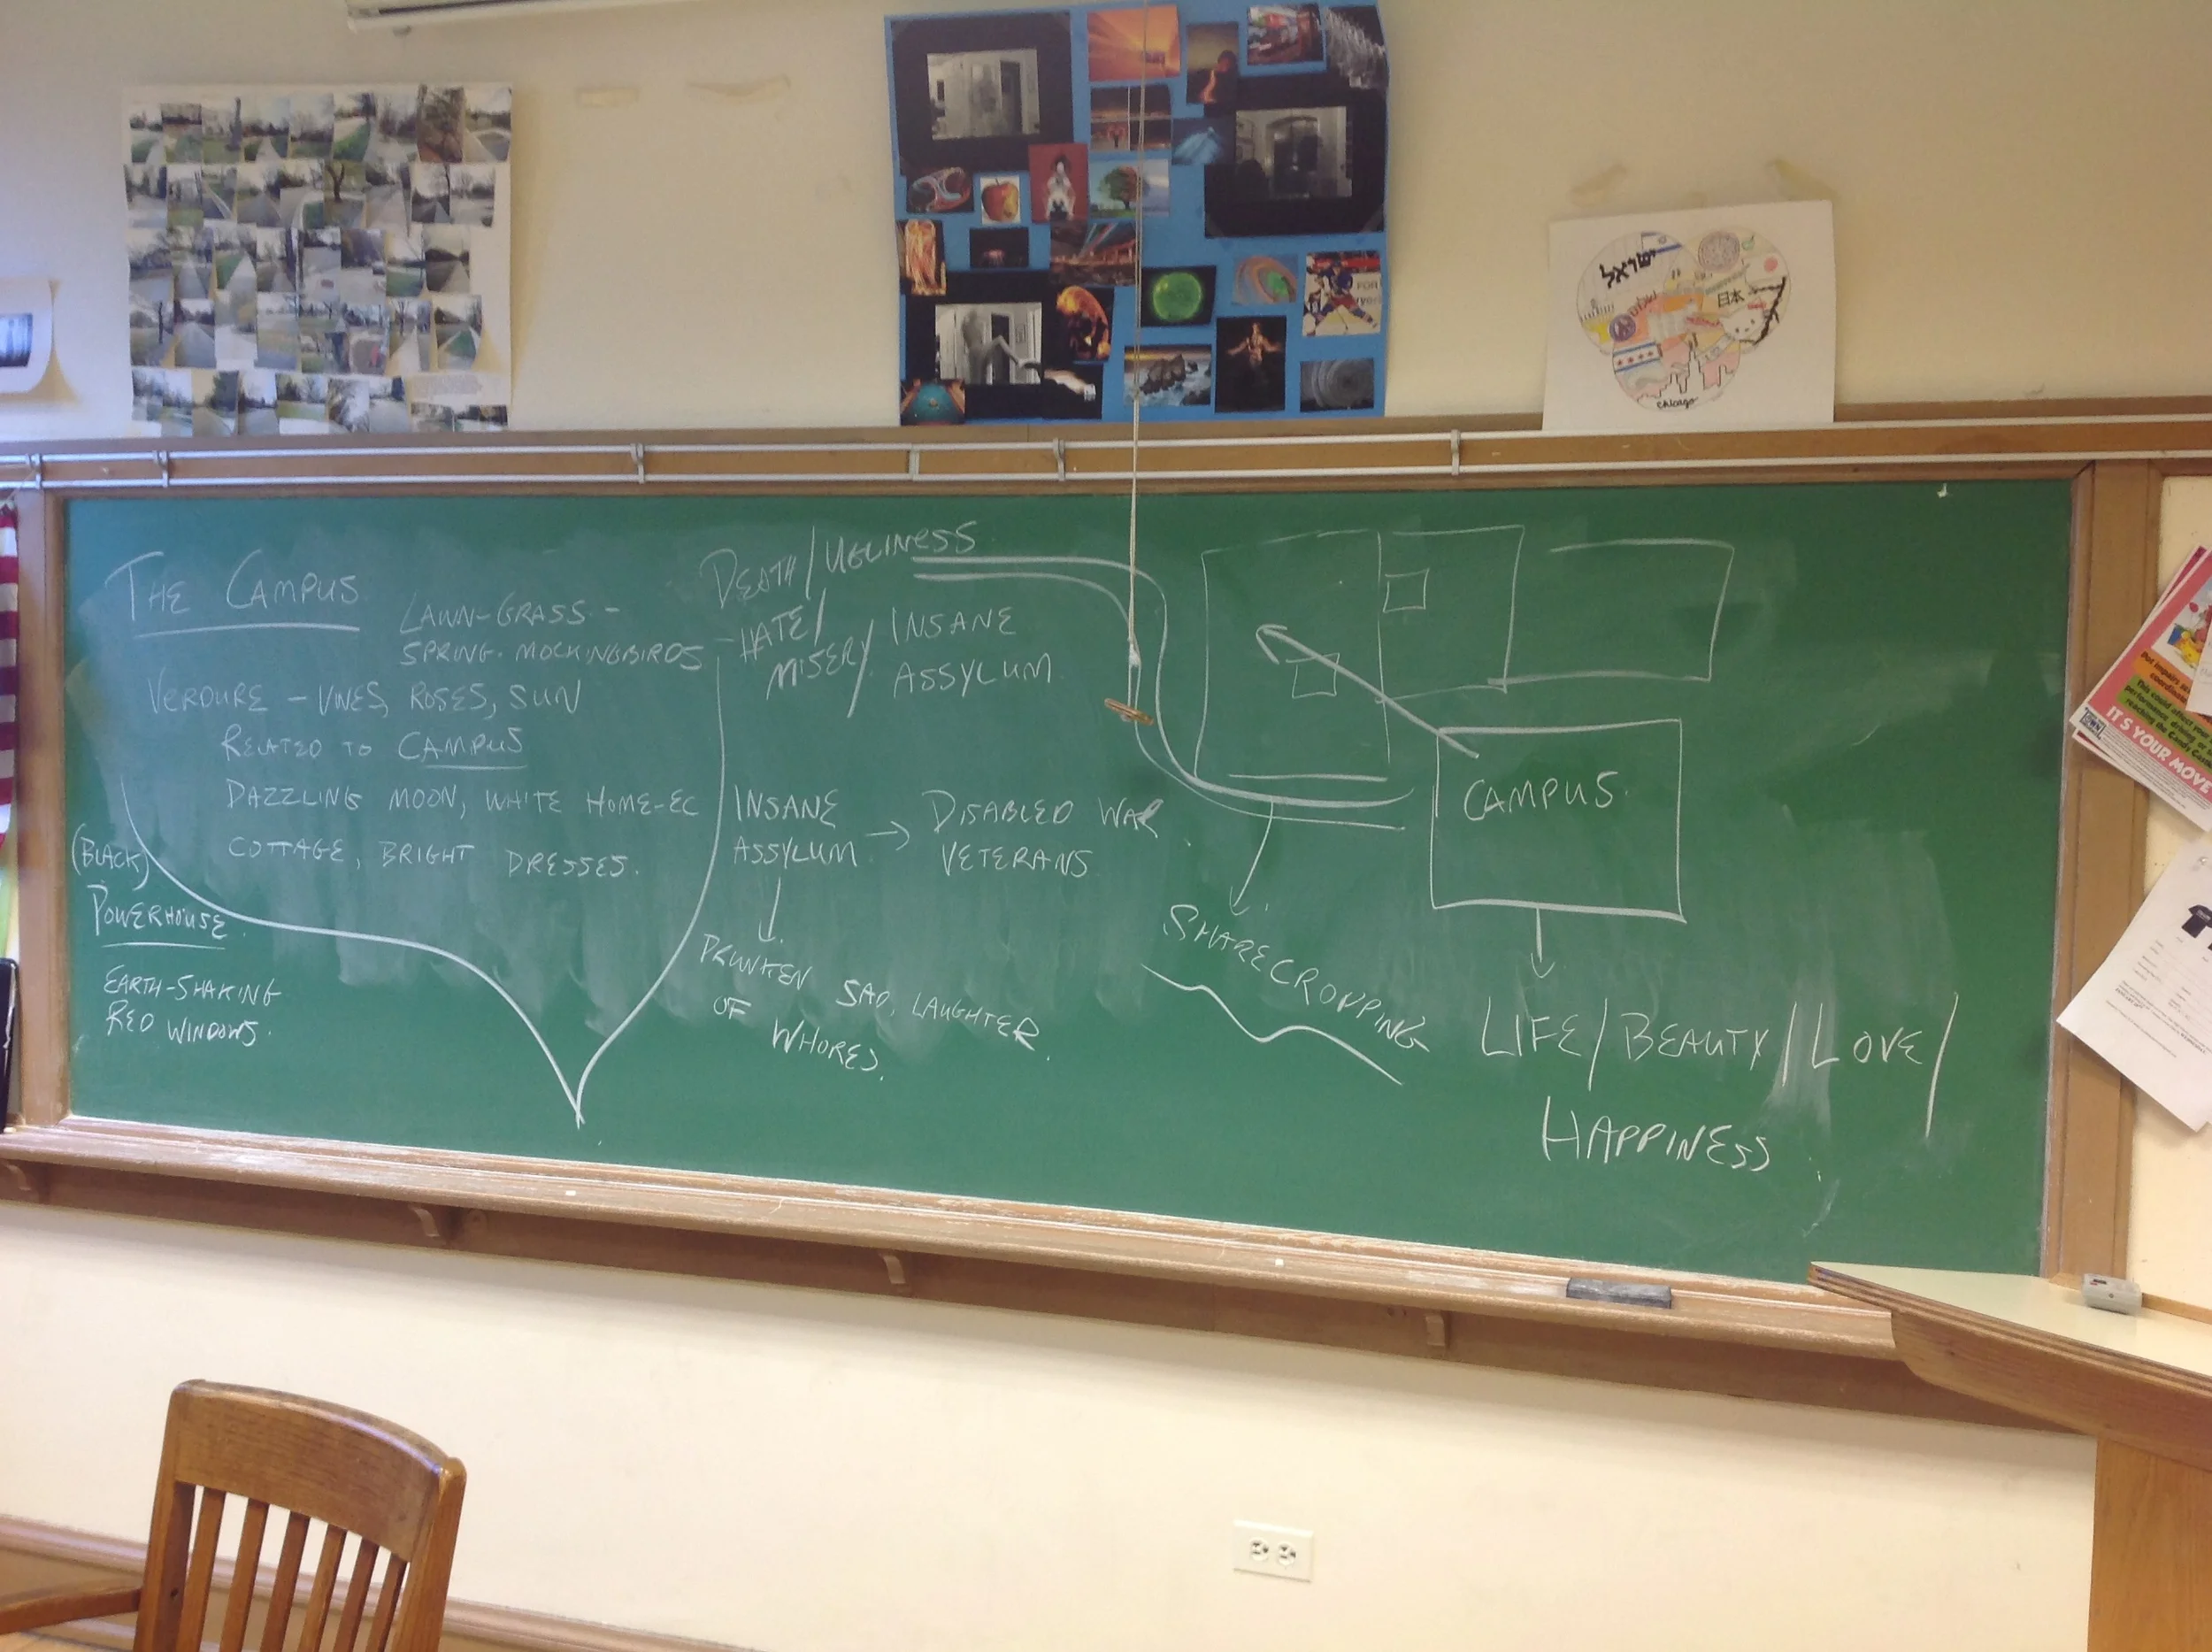 ישראל
日本
Chicago
FOR
THE CAMPUS
LAWN-GRASS-
SPRING-MOCKINGBIRDS
VERDURE - VINES, ROSES, SUN
RELATED TO CAMPUS
DAZZLING MOON, WHITE HOME-EC
COTTAGE, BRIGHT DRESSES.
(BLACK)
POWERHOUSE.
EARTH-SHAKING
RED WINDOWS.
DEATH/UGLINESS
HATE/
MISERY/
INSANE
ASSYLUM
INSANE
ASSYLUM → DISABLED WAR
VETERANS
DRUNKEN SAD, LAUGHTER
OF WHORES.
SHARECROPPING
CAMPUS.
LIFE/BEAUTY/LOVE/
HAPPINESS
IT'S YOUR MOVE